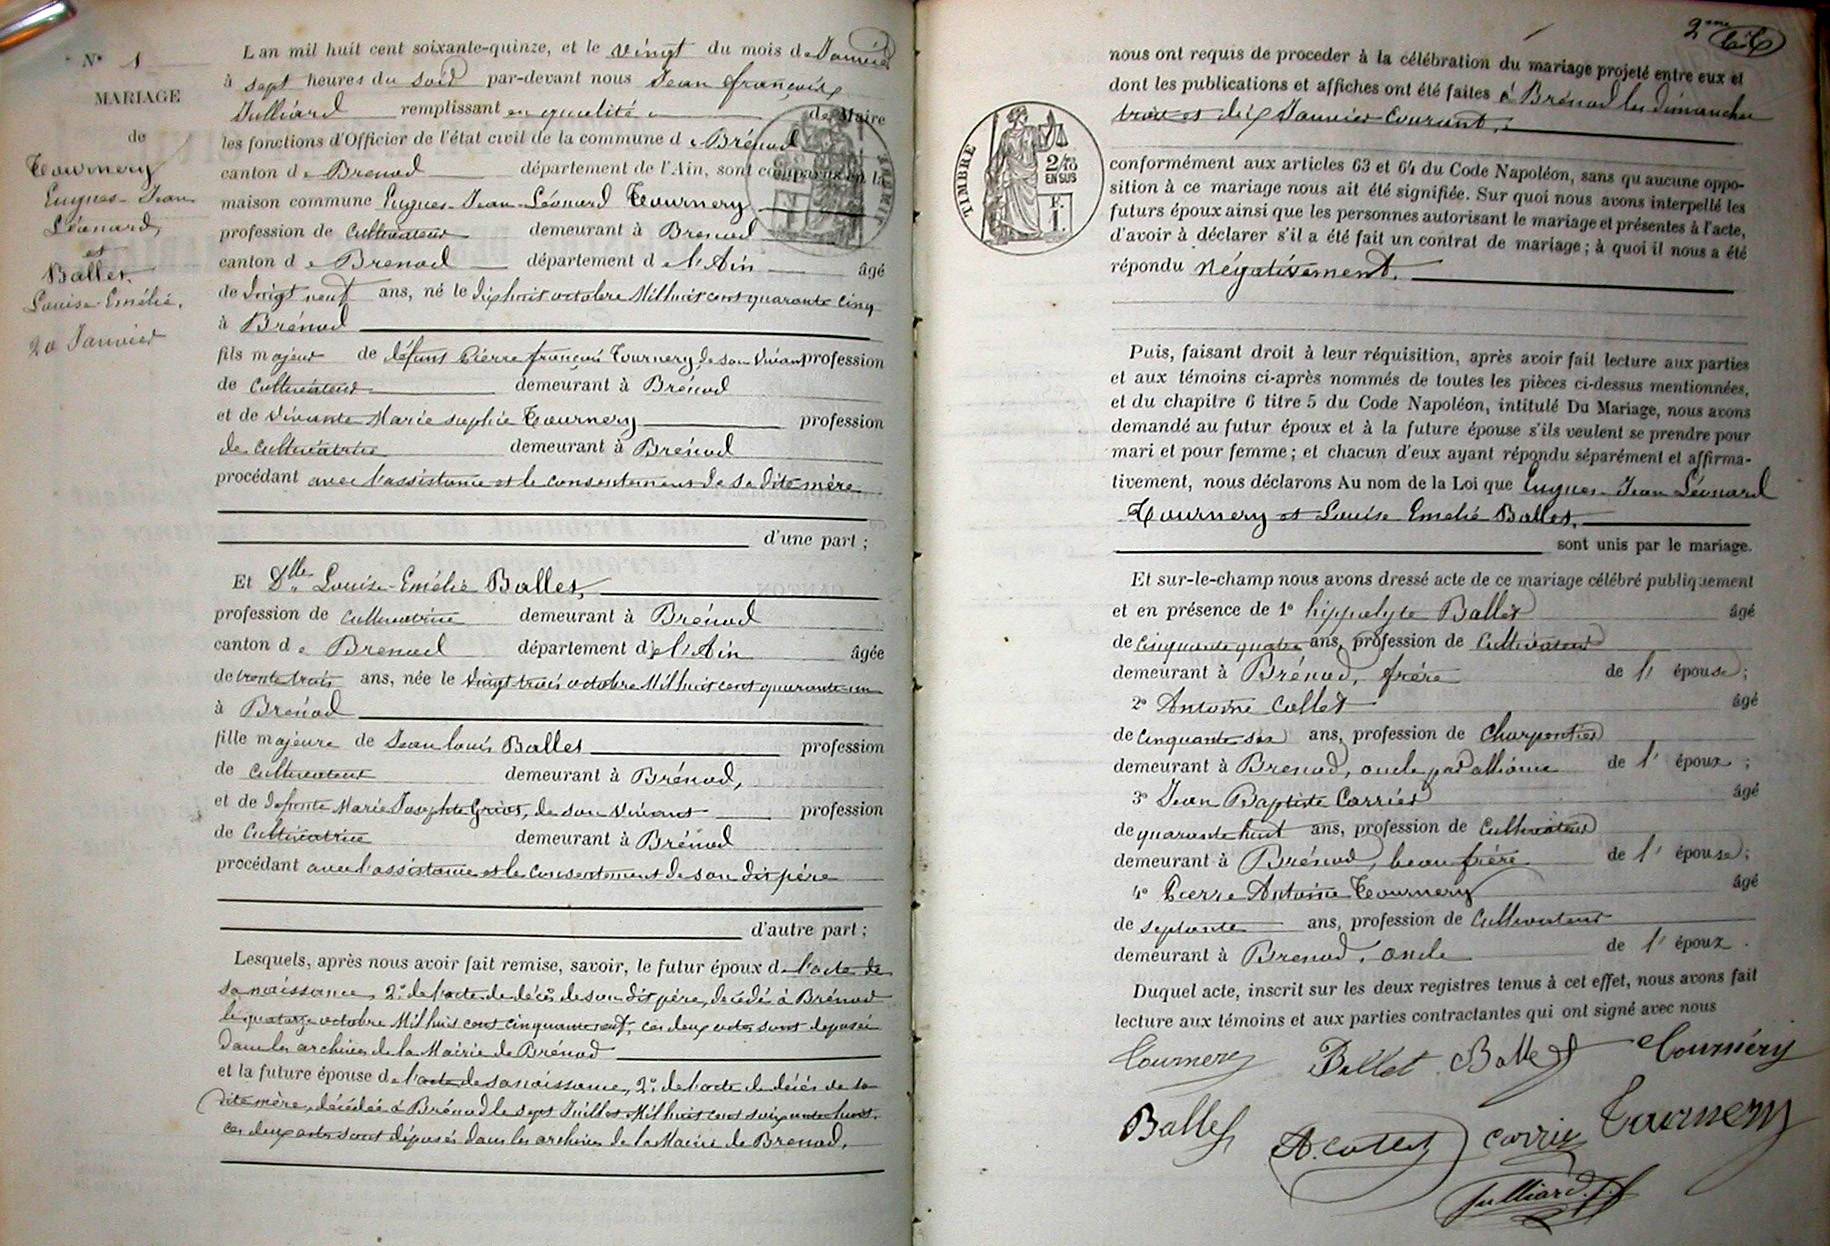 N° 1
MARIAGE
de
Tournery
Eugnes-Jean
Léonard,
et
Ballet
Louise-Emélie.
20 Janvier
L an mil huit cent soixante-quinze, et le vingt du mois de Janvier
à sept heures du soir par-devant nous Jean françois
Julliard remplissant en qualité de Maire
les fonctions d'Officier de l'état civil de la commune d e Brénod
canton d e Brenod département de l'Ain, sont comparus en la
maison commune Eugnes-Jean-Léonard Tournery
profession de Cultivateur demeurant à Brenod
canton d e Brenod département d e l'Ain âgé
de vingt neuf ans, né le dix huit octobre Mil huit cent quarante cinq
à Brénod
fils majeur de défunt Pierre françois Tournery, de son vivant profession
de Cultivateur demeurant à Brénod
et de vivante Marie sophie Tournery profession
de Cultivatrice demeurant à Brénod
procédant avec l'assistance et le consentement de sa dite mère
d'une part ;
Et Dlle Louise-Emélie Ballet,
profession de Cultivatrice demeurant à Brénod
canton d e Brenod département de l'Ain âgée
de trente trois ans, née le vingt trois octobre Mil huit cent quarante un
à Brénod
fille majeure de Jean louis Ballet profession
de Cultivateur demeurant à Brénod,
et de defunte Marie Josephte Griot, de son vivant profession
de Cultivatrice demeurant à Brénod
procédant avec l'assistance et le Consentement de son dit père
d'autre part ;
Lesquels, après nous avoir fait remise, savoir, le futur époux d e l'acte de
sa naissance, 2° de l'acte de décès de son dit père, décédé à Brénod
le quatorze octobre Mil huit cent cinquante neuf, ces deux actes sont déposés
dans les archives de la Mairie de Brénod
et la future épouse d e l'acte de sa naissance, 2° de l'acte de décès de sa
dite mère, décédée à Brénod le sept Juillet Mil huit cent soixante huit.
ces deux actes sont déposés dans les archives de la Mairie de Brenod.
2me
TIMBRE
2/10
EN SUS
F.
1.
nous ont requis de proceder à la célébration du mariage projeté entre eux et
dont les publications et affiches ont été faites à Brénod les dimanches
trois et dix Janvier Courant.
conformément aux articles 63 et 64 du Code Napoléon, sans qu aucune oppo-
sition à ce mariage nous ait été signifiée. Sur quoi nous avons interpellé les
futurs époux ainsi que les personnes autorisant le mariage et présentes à l'acte,
d'avoir à déclarer s'il a été fait un contrat de mariage ; à quoi il nous a été
répondu Négativement.
Puis, faisant droit à leur réquisition, après avoir fait lecture aux parties
et aux témoins ci-après nommés de toutes les pièces ci-dessus mentionnées,
et du chapitre 6 titre 5 du Code Napoléon, intitulé Du Mariage, nous avons
demandé au futur époux et à la future épouse s'ils veulent se prendre pour
mari et pour femme ; et chacun d'eux ayant répondu séparément et affirma-
tivement, nous déclarons Au nom de la Loi que Eugnes-Jean Léonard
Tournery et Louise Emélie Ballet.
sont unis par le mariage.
Et sur-le-champ nous avons dressé acte de ce mariage célébré publiquement
et en présence de 1° hippolyte Ballet âgé
de Cinquante quatre ans, profession de Cultivateur
demeurant à Brénod, frère de l' épouse ;
2° Antoine Collet âgé
de Cinquante six ans, profession de Charpentier
demeurant à Brenod, oncle par alliance de l' époux ;
3° Jean Baptiste Carrier âgé
de quarante huit ans, profession de Cultivateur
demeurant à Brénod, beau frère de l' épouse ;
4° Pierre Antoine Tournery âgé
de septante ans, profession de Cultivateur
demeurant à Brenod, oncle de l' époux .
Duquel acte, inscrit sur les deux registres tenus à cet effet, nous avons fait
lecture aux témoins et aux parties contractantes qui ont signé avec nous
Tournery Ballet Ballet Tournéry
Ballet A. Collet Carrier Tournery
Julliard J. f